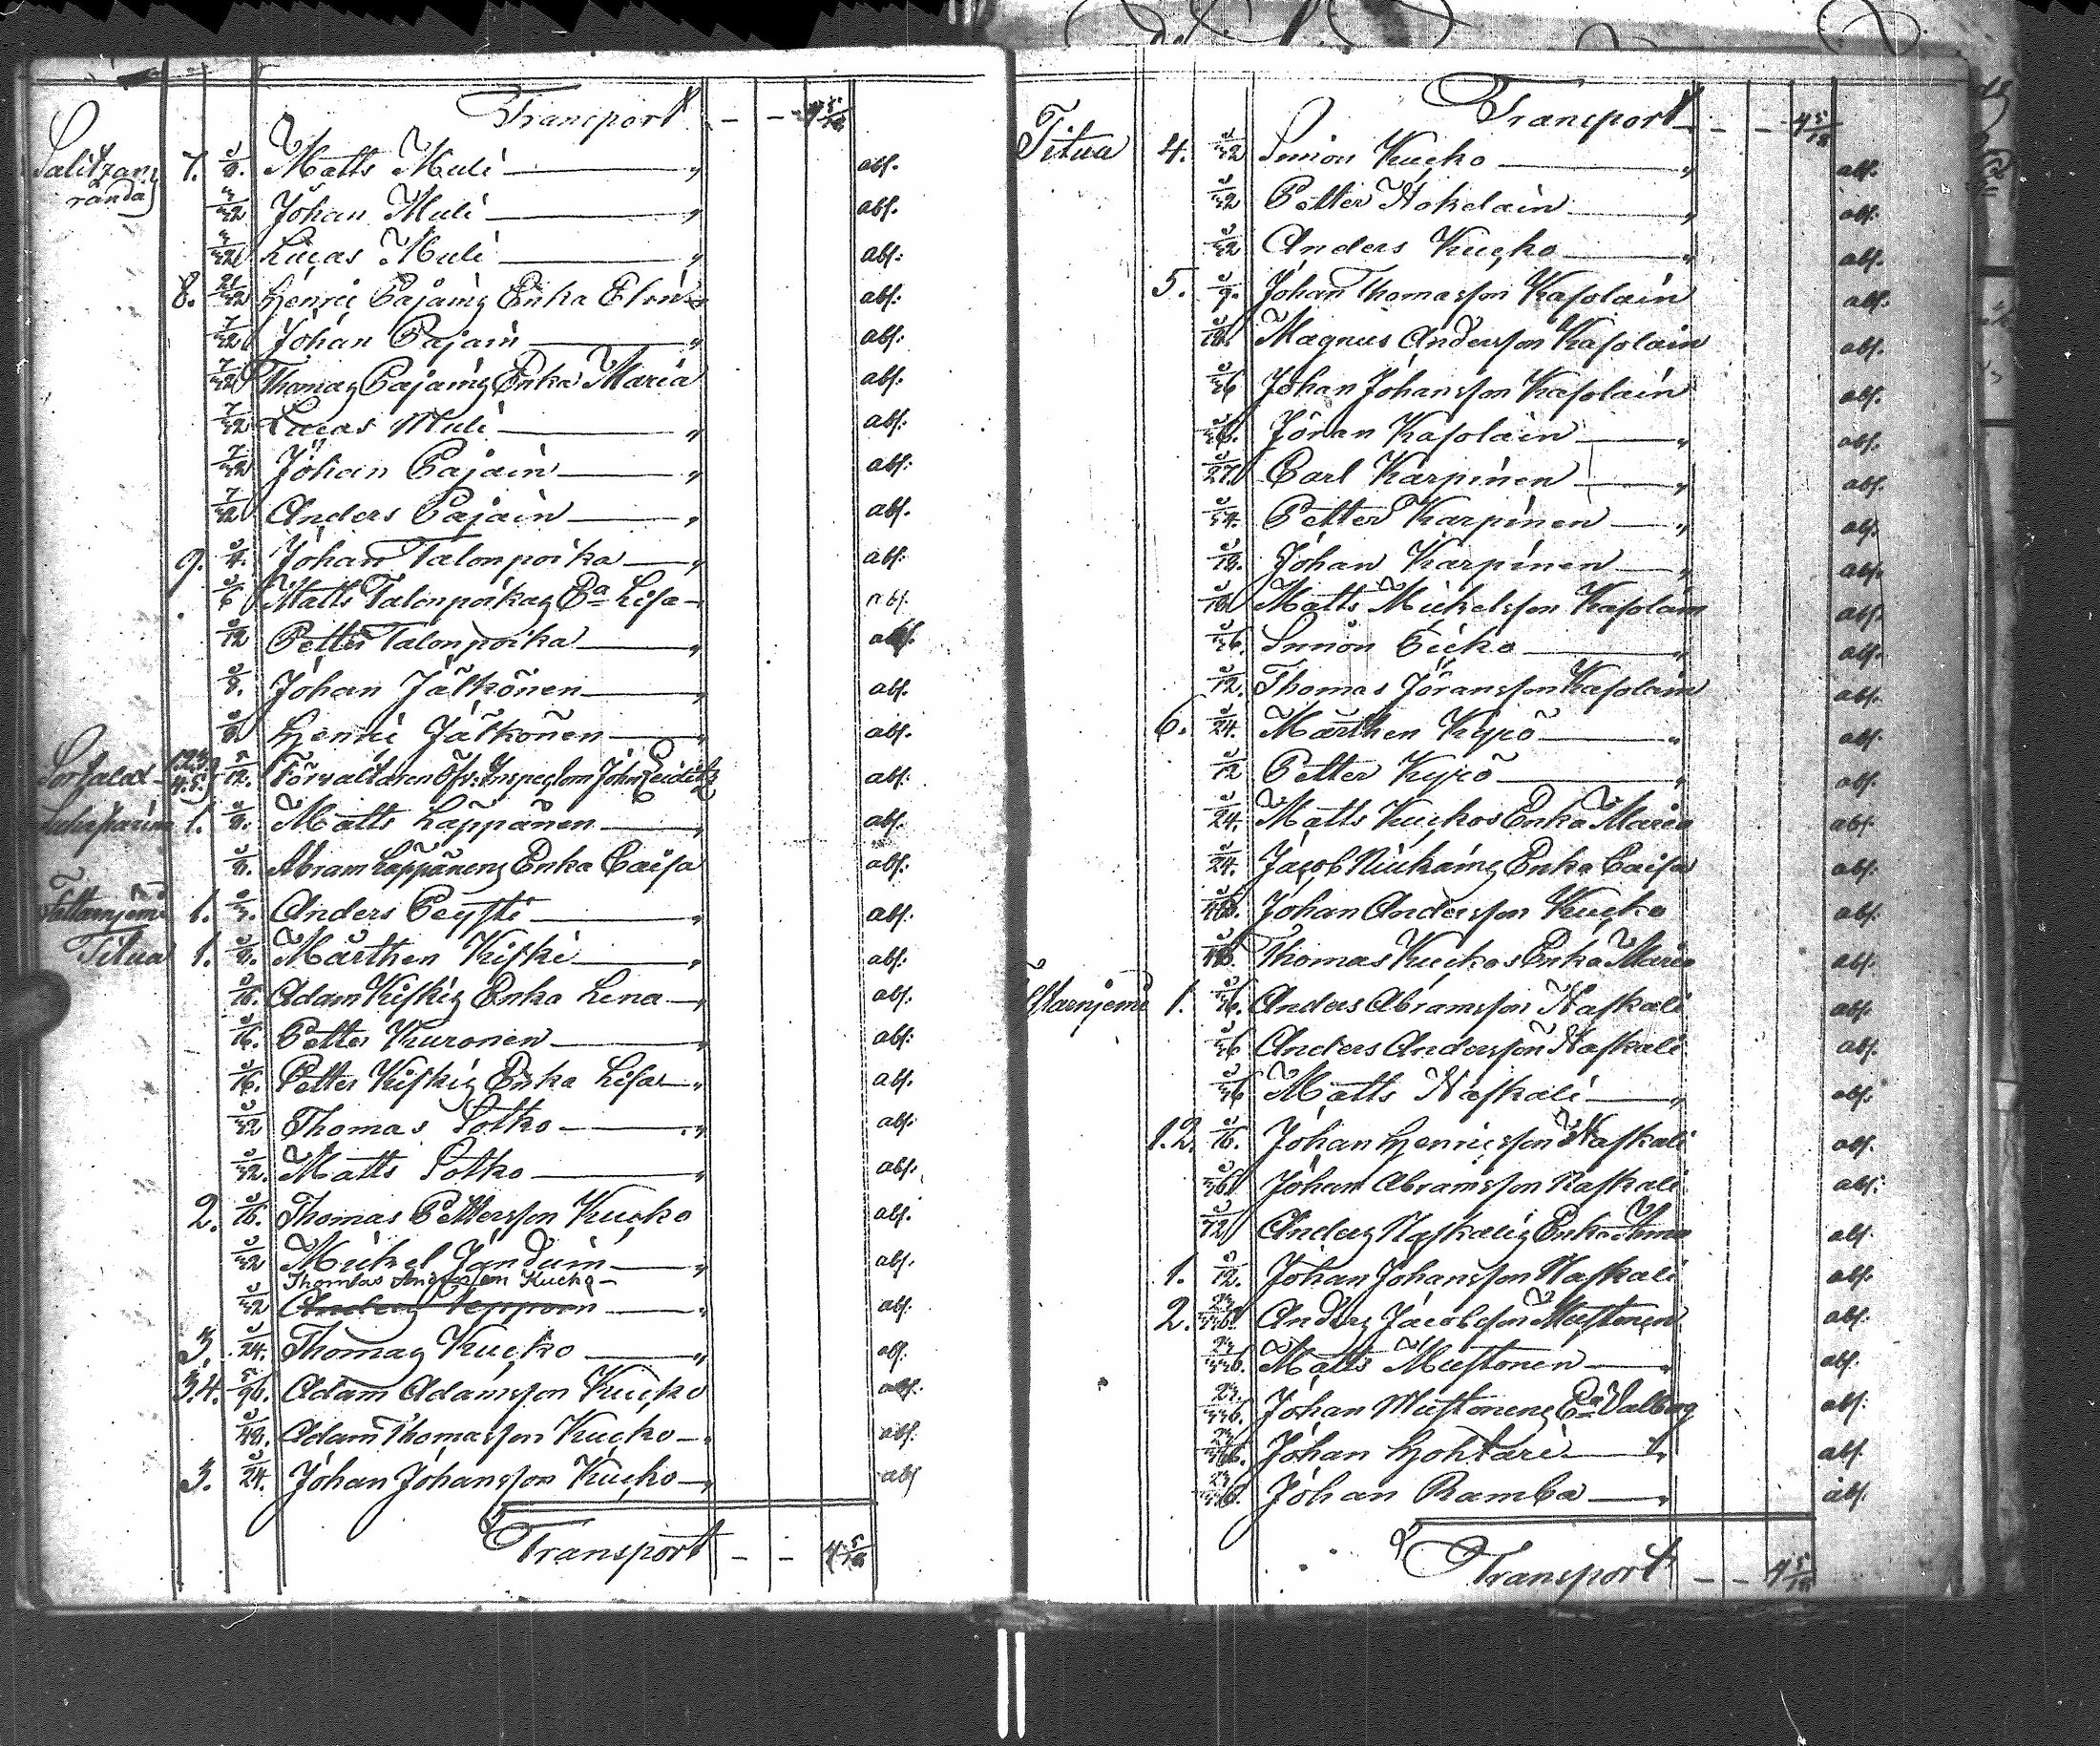 Transport - - 4 5/12
Salitzanranda 7. Matts Muli " abs.
Johan Muli " abs.
Lucas Muli " abs:
8. Henric Pajains Enka Elin " abs:
Johan Pajain " abs:
Thomas Pajains Enka Maria abs:
Lucas Muli " abs:
Johan Pajain " abs:
Anders Pajain " abs.
9. Johan Talonpoika " abs:
Matts Talonpoikas Ea Lisa abs.
Petter Talonpoika " abs.
Johan Jälkönen " abs.
Henric Jälkönen " abs.
5/12. Förvaltaren Johan abs:
1. Matts Lappänen " abs.
Abram Lappänens Enka Caisa abs:
1. Anders Peysti " abs.
Titua 1. Mårthen Kiski " abs:
1/16. Adam Kiskis Enka Lena " abs.
1/16. Petter Kuronen " abs:
1/16. Petter Kiskis Enka Lisa " abs.
1/32 Thomas Sotko " abs:
1/32 Matts Sotko " abs.
2. 1/16. Thomas Pettersson Kucko abs.
1/32 Mickel Janduin " abs.
Thomas Andersson Kucko
1/32 Anders " abs.
3. 1/24. Thomas Kucko " abs.
3.4. 5/96. Adam Adamsson Kucko abs.
1/48. Adam Thomasson Kucko " abs.
3. 1/24. Johan Johansson Kucko " abs
Transport - - 4 5/12
Transport - - 4 5/12
Titua 4. 1/32 Simon Kucko " abs.
1/32 Petter Hokelain " abs.
1/32 Anders Kucko " abs.
5. 1/9. Johan Thomasson Kasolain abs.
1/18. Magnus Andersson Kasolain abs.
1/36 Johan Johansson Kasolain abs.
1/36. Jöran Kasolain " abs.
1/27. Carl Karpinen " abs.
1/54. Petter Karpinen " abs.
1/18. Johan Karpinen " abs.
1/18. Matts Mickelsson Kasolain abs.
1/36. Simon Eicko " abs.
1/12. Thomas Jöransson Kasolain abs.
6. 1/24. Mårthen Kyrö " abs.
1/12 Petter Kyrö " abs.
1/24. Matts Kuckos Enka Maria abs.
1/24. Jacob Niukains Enka Caisa abs.
1/48. Johan Andersson Kucko abs.
1/48. Thomas Kuckos Enka Maria abs.
1. 1/36. Anders Abramsson Naskali abs.
1/36 Anders Andersson Naskali abs.
1/36 Matts Naskali " abs.
1.2. 1/16. Johan Henricsson Naskali abs.
Johan Abramsson Naskali abs.
1/72 Anders Naskalis Enka Anna abs.
1. 1/12. Johan Johansson Naskali abs.
2. Anders Jacobsson Mustonen abs.
Matts Mustonen " abs.
Johan Mustonens Ea Valborg abs.
Johan Hohtari " abs.
Johan Ramba " abs.
Transport - - 4 5/12